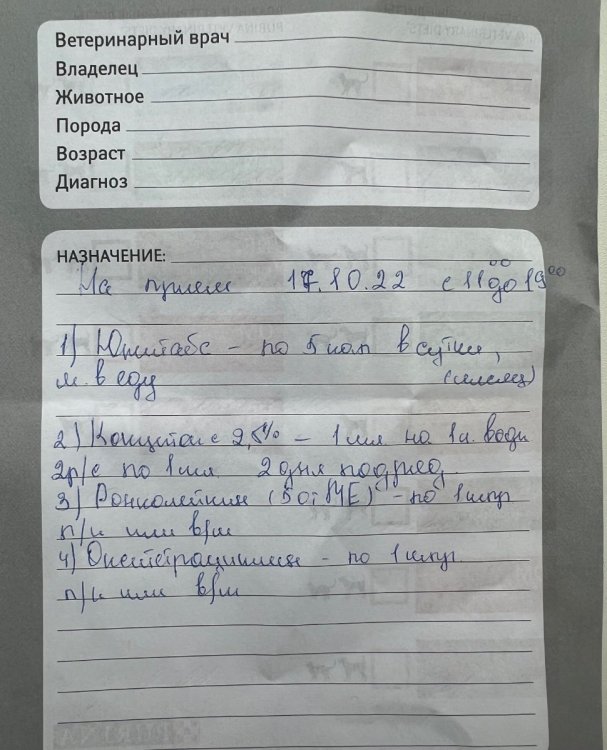 Ветеринарный врач
Владелец
Животное
Порода
Возраст
Диагноз
НАЗНАЧЕНИЕ:
На прием 17.10.22 с 11⁰⁰ до 19⁰⁰
1) Юнитабс - по 5 кап в сутки,
м. в еду (месяц)
2) 2,5% - 1 мл на 1 л. воды
2р/с по 1 мл 2 дня подряд
3) Ронколейкин (50т МЕ) - по 1 инр
п/к или в/м
4) Окситетрациклин - по 1 инр
п/к или в/м